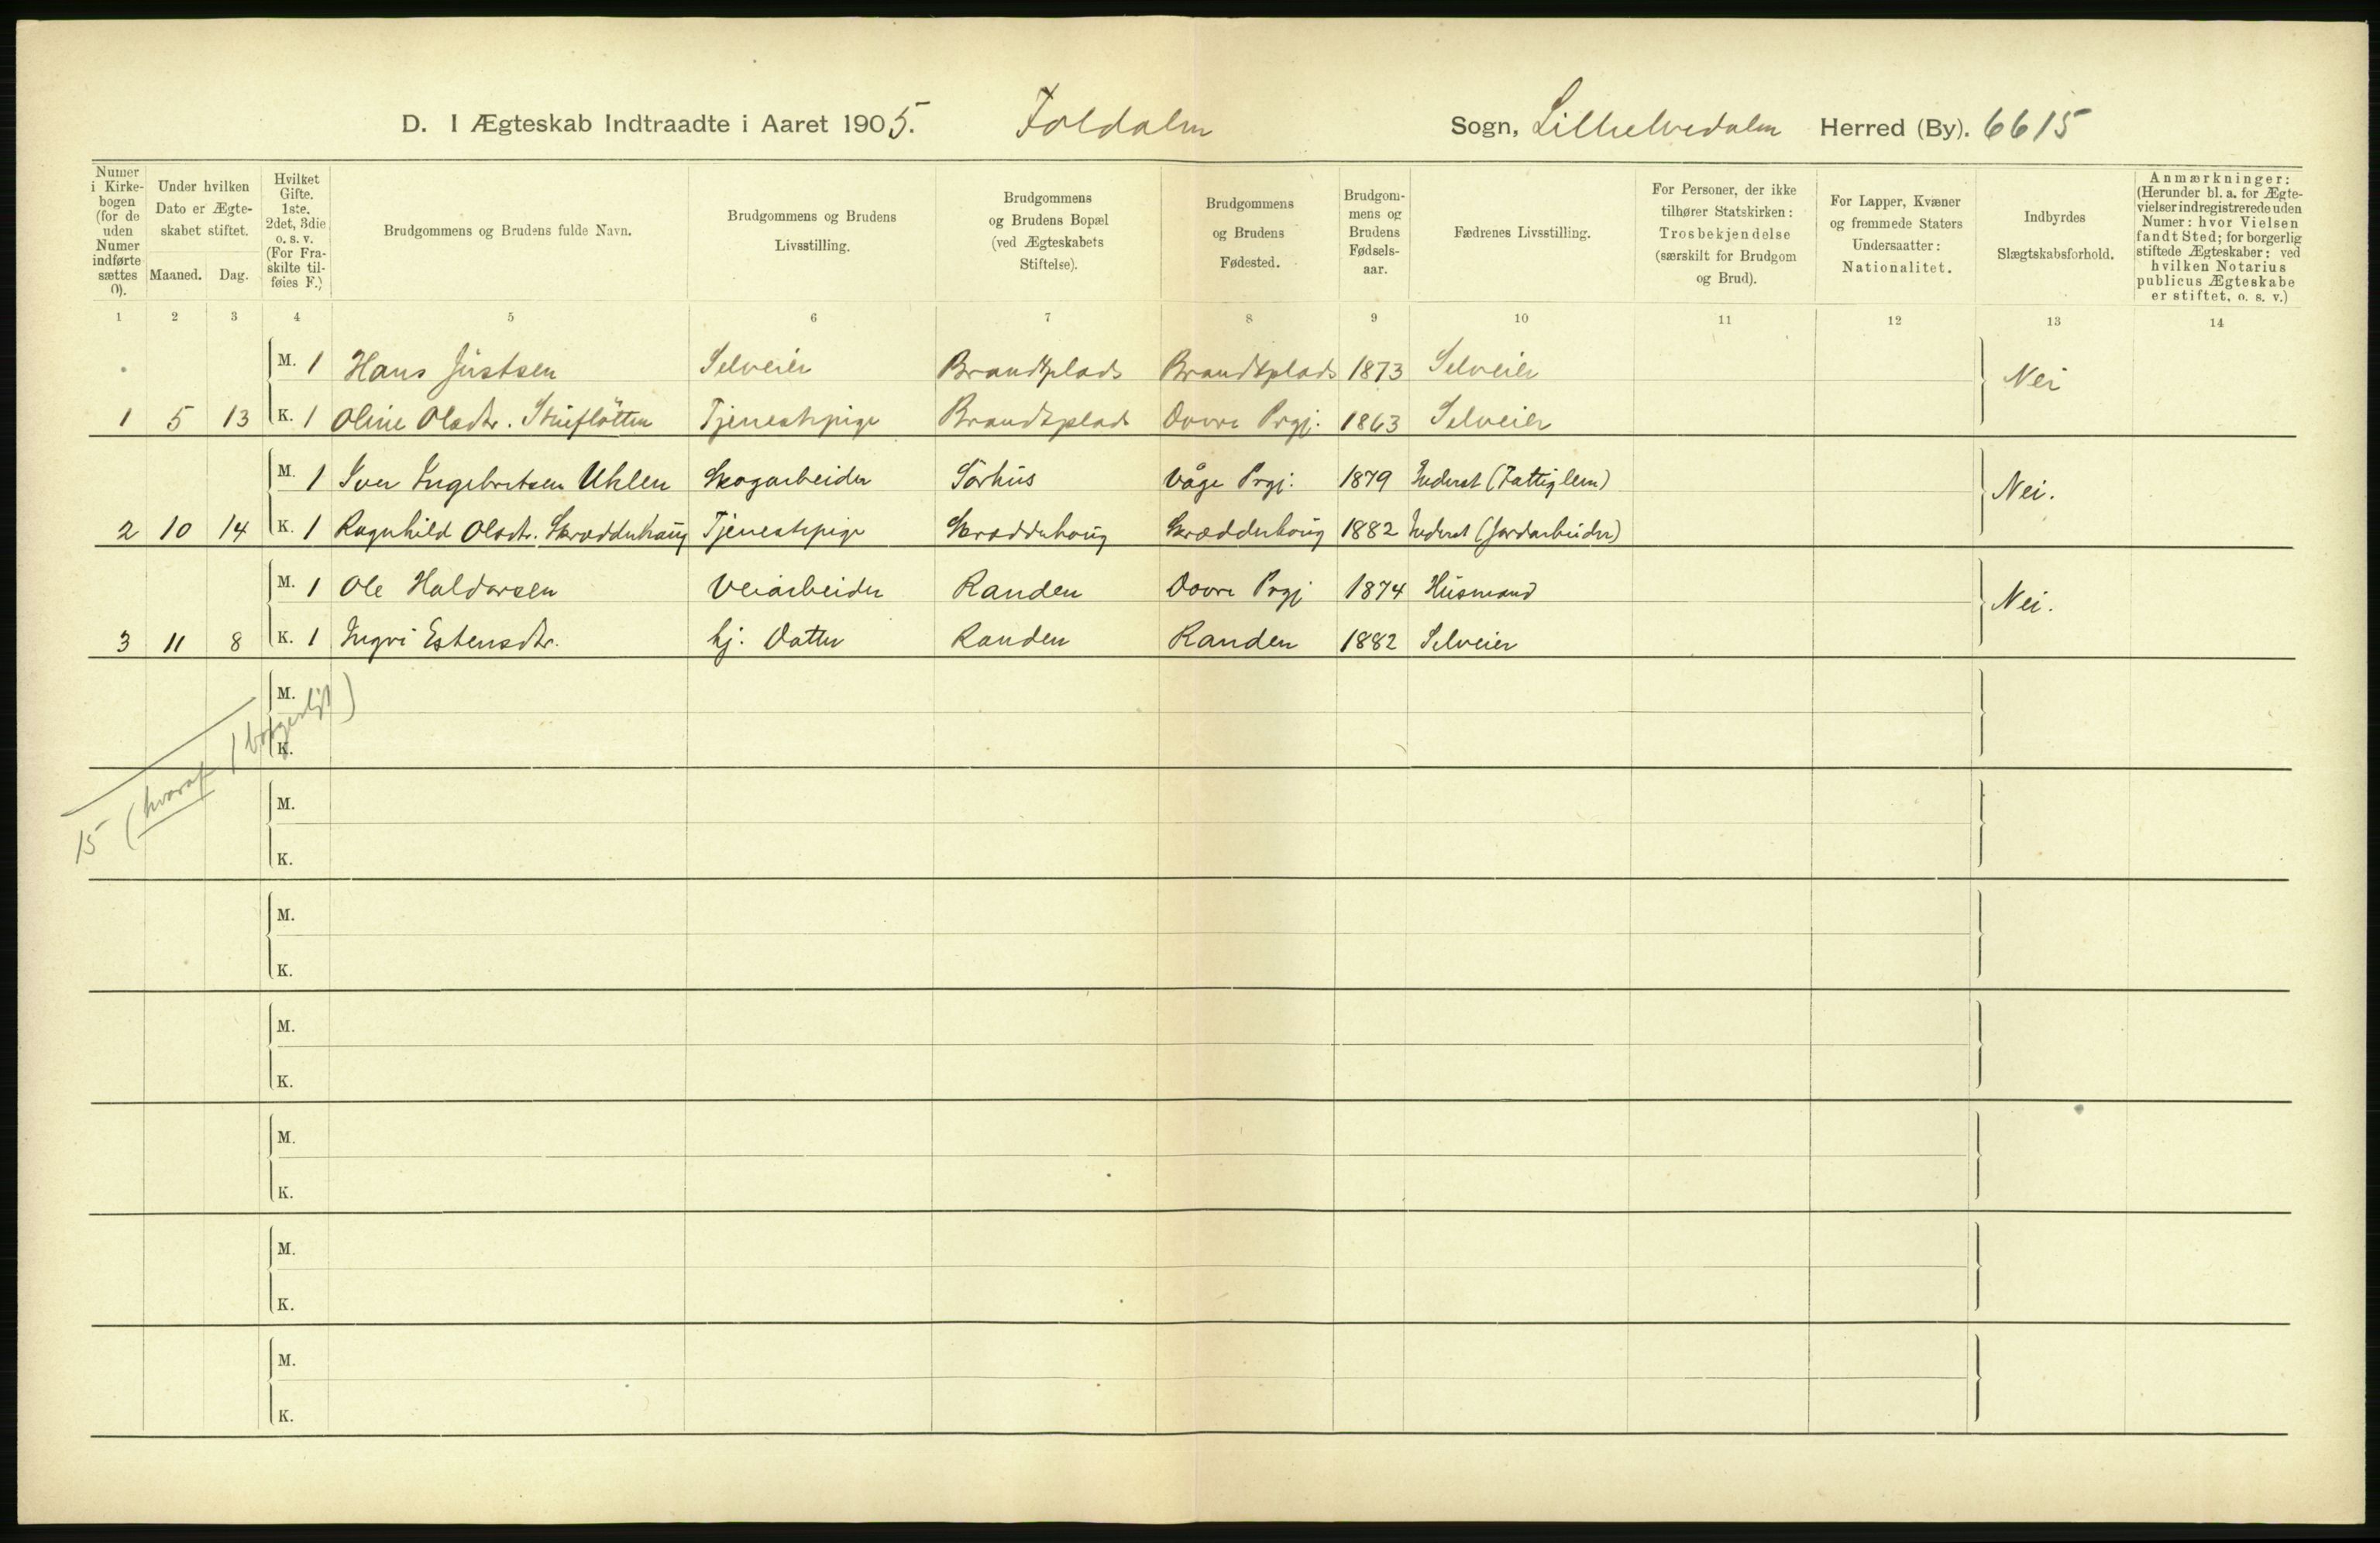 D. I Ægteskab Indtraadte i Aaret 1905. Foldalen Sogn, Lilleelvedalen Herred (By). 6615
Numer i Kirkebogen (for de uden Numer indførte sættes 0).
Under hvilken Dato er Ægteskabet stiftet.
Maaned. Dag.
Hvilket Gifte. 1ste, 2det, 3die o. s. v. (For Fraskilte tilføies F.)
Brudgommens og Brudens fulde Navn.
Brudgommens og Brudens Livsstilling.
Brudgommens og Brudens Bopæl (ved Ægteskabets Stiftelse).
Brudgommens og Brudens Fødested.
Brudgommens og Brudens Fødselsaar.
Fædrenes Livsstilling.
For Personer, der ikke tilhører Statskirken: Trosbekjendelse (særskilt for Brudgom og Brud).
For Lapper, Kvæner og fremmede Staters Undersaatter: Nationalitet.
Indbyrdes Slægtskabsforhold.
Anmærkninger: (Herunder bl. a. for Ægtevielser indregistrerede uden Numer: hvor Vielsen fandt Sted; for borgerlig stiftede Ægteskaber: ved hvilken Notarius publicus Ægteskabe er stiftet, o. s. v.)
1 2 3 4 5 6 7 8 9 10 11 12 13 14
M. 1 Hans Justsen Selveier Brandtplads Brandtplads 1873 Selveier Nei
1 5 13 K. 1 Oline Olsdtr. Tjenestepige Brandtplads Dovre Prgj. 1863 Selveier
M. 1 Iver Ingebretsen Uhlen Skogarbeider Sørhus Våge Prgj. 1879 Inderst (Fattiglem) Nei.
2 10 14 K. 1 Ragnhild Olsdtr. Skrædderhaug Tjenestepige Skrædderhaug Skrædderhaug 1882 Inderst (Jordarbeider)
M. 1 Ole Haldorsen Veiarbeider Randen Dovre Prgj 1874 Husmand Nei.
3 11 8 K. 1 Ingri Estensdtr. hj. Datter Randen Randen 1882 Selveier
15 (hvoraf 1 borgerligt)
M.
K.
M.
K.
M.
K.
M.
K.
M.
K.
M.
K.
M.
K.